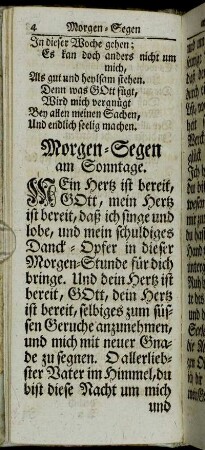 4 Morgen-Segen
In dieser Woche gehen;
Es kan doch anders nicht um
mich,
Als gut und heylsam stehen.
Denn was GOtt fügt,
Wird mich vergnügt
Bey allen meinen Sachen,
Und endlich seelig machen.
Morgen-Segen
am Sonntage.
MEin Hertz ist bereit,
GOtt, mein Hertz
ist bereit, daß ich singe und
lobe, und mein schuldiges
Danck-Opfer in dieser
Morgen-Stunde für dich
bringe. Und dein Hertz ist
bereit, GOtt, dein Hertz
ist bereit, selbiges zum süs-
sen Geruche anzunehmen,
und mich mit neuer Gna-
de zu segnen. O allerlieb-
ster Vater im Himmel, du
bist diese Nacht um mich
und